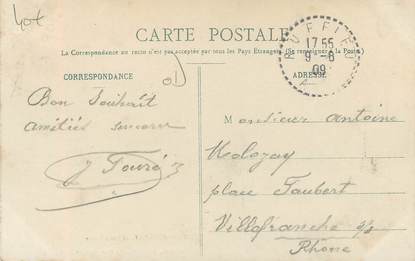 40t
CARTE POSTALE
La Correspondance au recto n'est pas acceptée par tous les Pays Etrangers. (Se renseigner à la Poste.)
RUFFIEU
17 55
9 - 6
09
CORRESPONDANCE
ADRESSE
Bon Souhait
Amitiés sincères
Monsieur Antoine
place Faubert
Villefranche s/s
Rhône